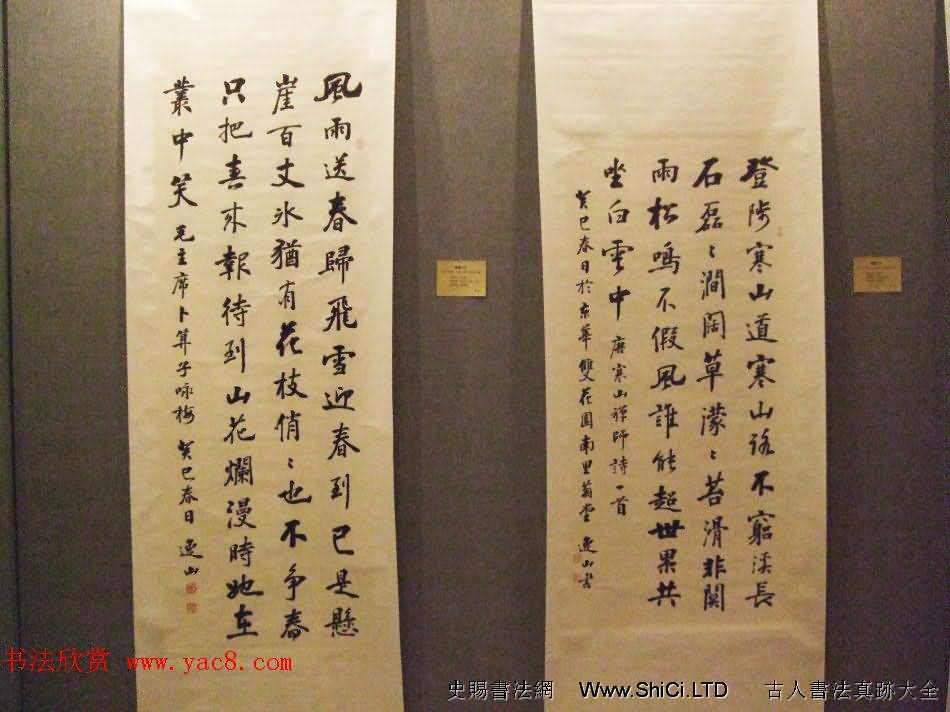 登陟寒山道寒山路不窮溪長
石磊〻澗闊草濛〻苔滑非關
雨松鳴不假風誰能超世累共
坐白雲中
唐寒山禅師詩一首
癸巳春日於京華雙花園南里菊堂 逸山書
風雨送春歸飛雪迎春到已是懸
崖百丈冰猶有花枝俏〻也不争春
只把春來報待到山花爛漫時她在
叢中笑
毛主席卜算子咏梅 癸巳春日 逸山
书法欣赏 www.yac8.com
史賜書法網 Www.ShiCi.LTD 古人書法真跡大全